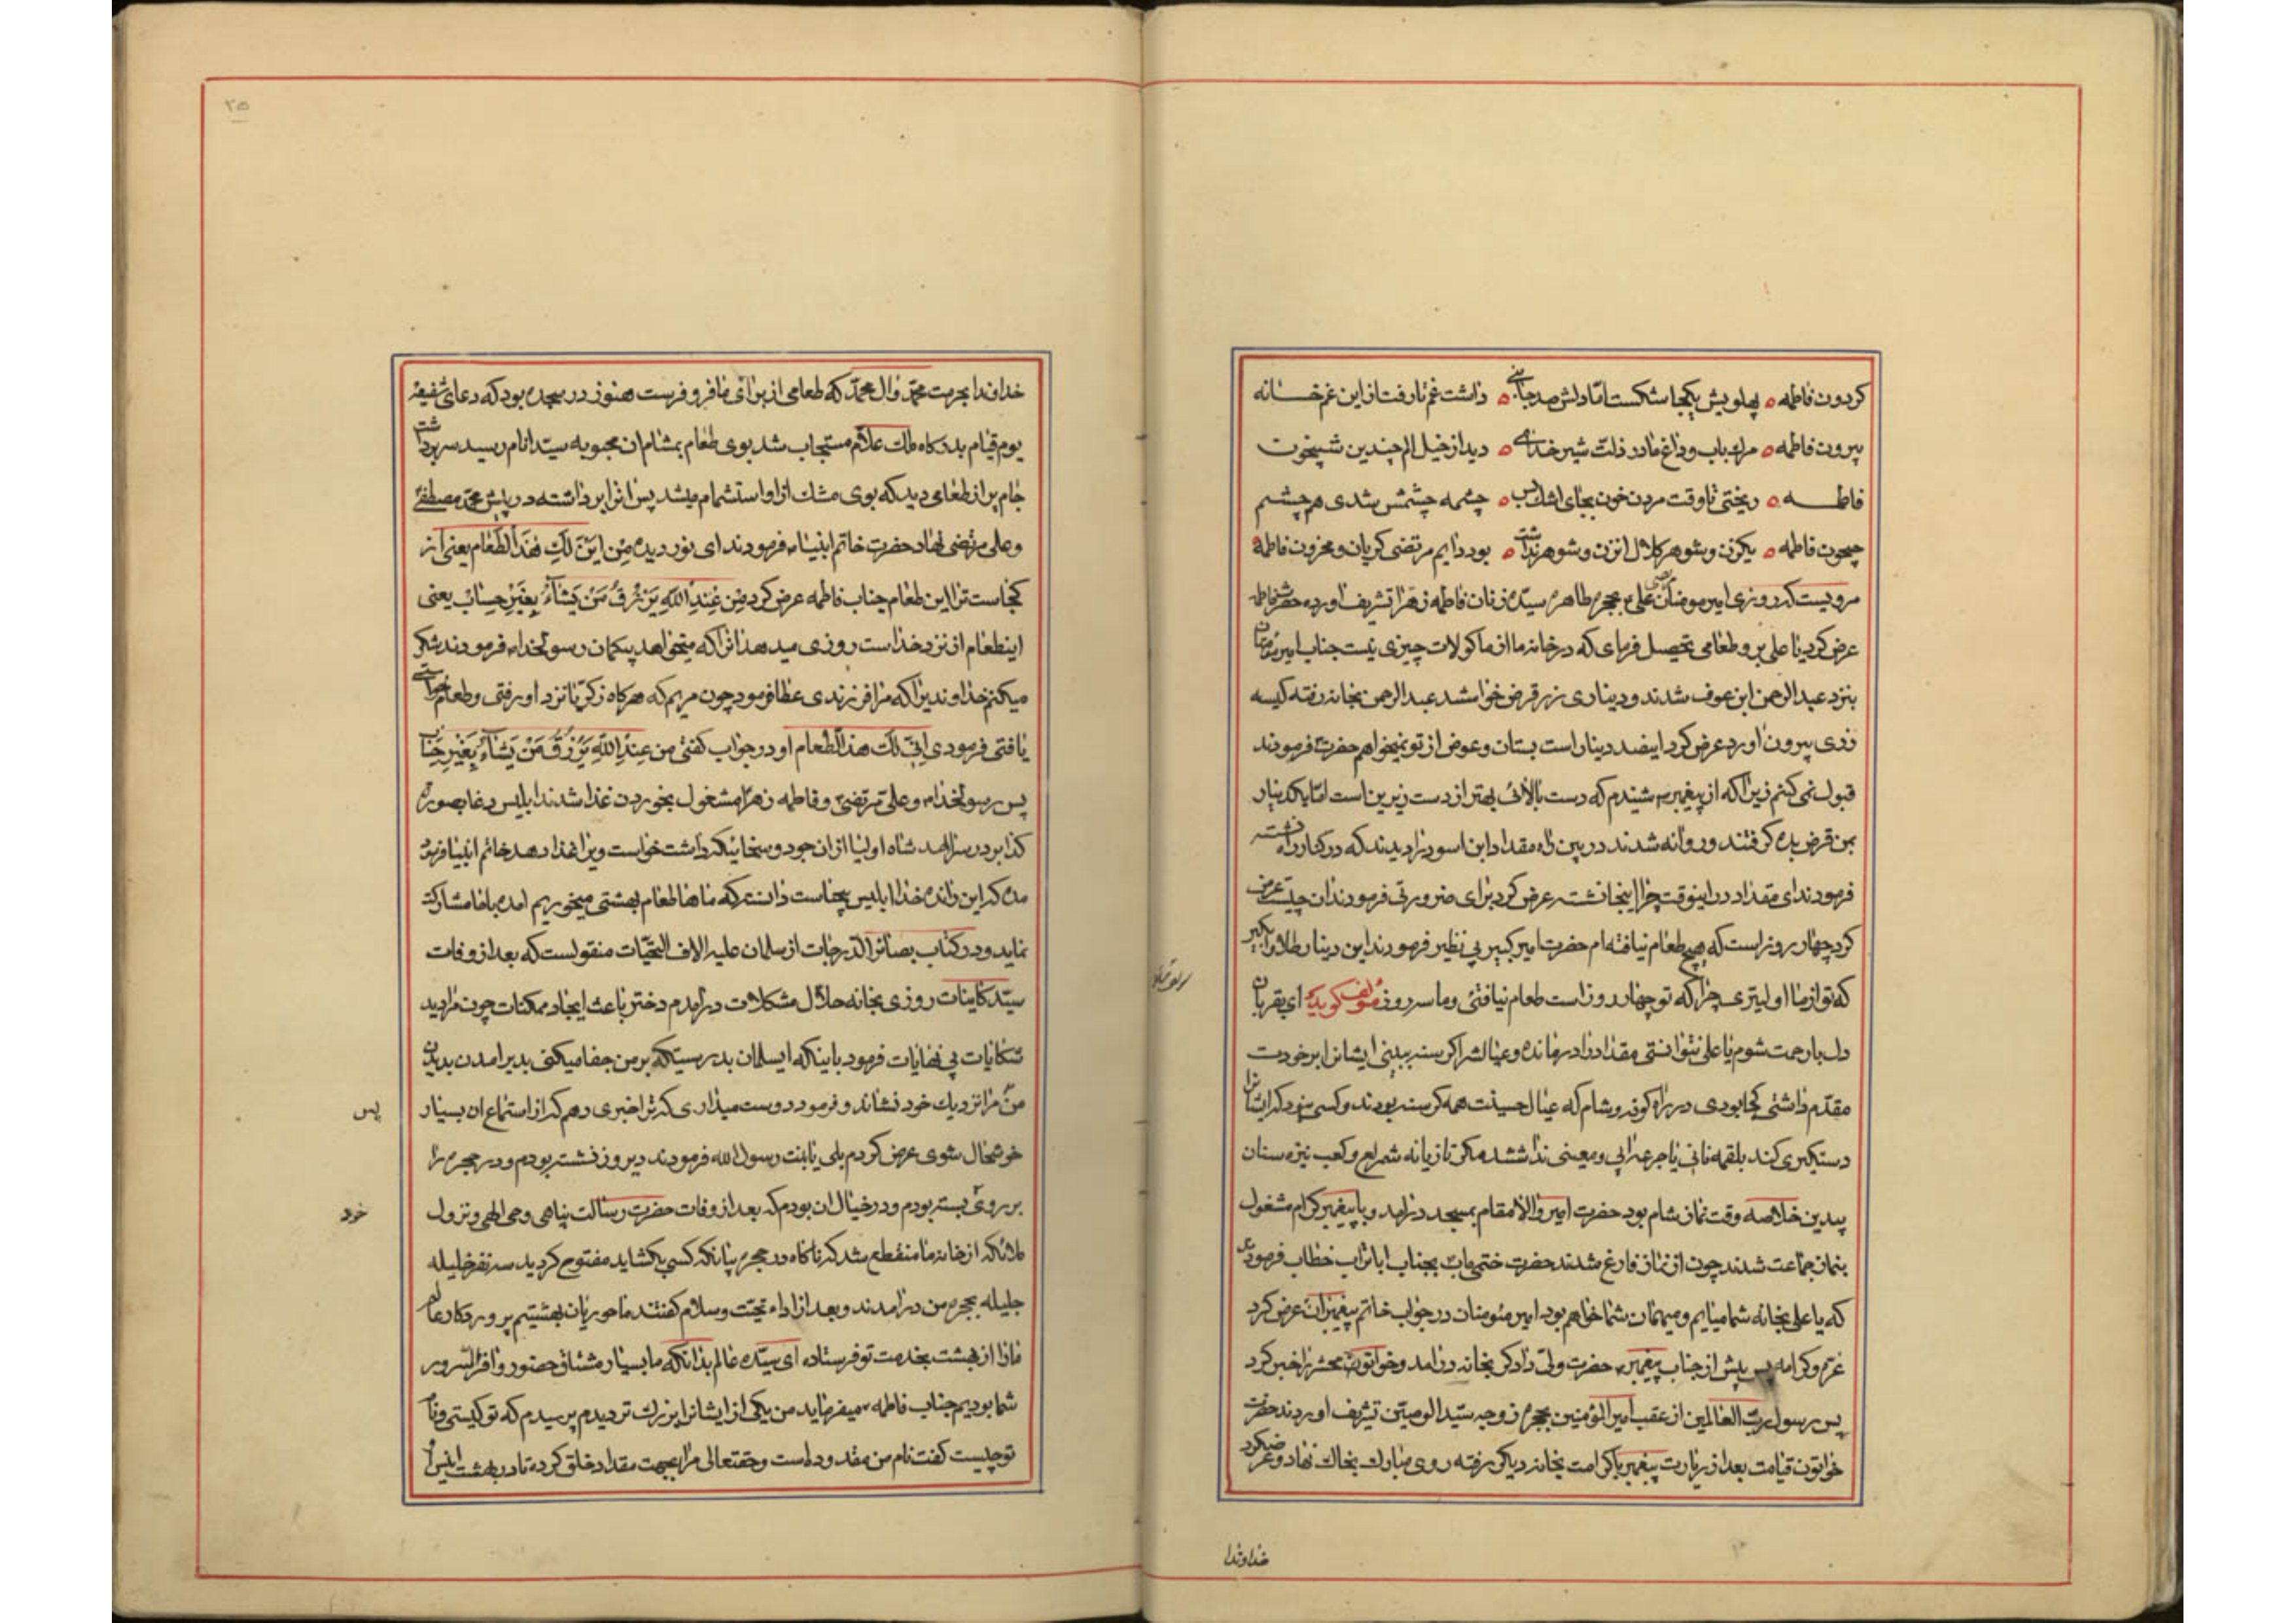 كردون فاطمه ه پهلویش یكجا شكست اما دلش صد جا ه داشت غم تا رفت از این غم خانه
بیرون فاطمه ه مرك باب و داغ مادر ذلت شیر خدا ه دید از خیل الم چندین شبیخون
فاطمه ه ریختی تا وقت مردن خون بجای اشك ه چشمه چشمش شدی هم چشم
جیحون فاطمه ه یكزن و شوهر كلال از زن و شوهر نداشت ه بود دایم مرتضی كریان و محزون فاطمه ه
مرویست كه روزی امیرمومنان علی بحجره طاهره سیده زنان فاطمه زهرا تشریف اورده حضرت فاطمه
عرض كرد یا علی برو طعامی تحصیل فرمای كه در خانه ما از ماكولات چیزی نیست جناب امیرمومنان
بنزد عبدالرحمن ابن عوف شدند و دیناری زر قرض خواستند عبدالرحمن بخانه رفته كیسه
زری بیرون اورد عرض كرد اینصد دینار است بستان و عوض از تو نمیخواهم حضرت فرمودند
قبول نمی كنم زیرا كه از پیغمبر شنیدم كه دست بالائی بهتر از دست زیرین است اما یكدینار
بمن قرض بده كرفتند و روانه شدند در بین راه مقداد ابن اسود را دیدند كه در كنار راه نشسته
فرمودند ای مقداد در اینوقت چرا اینجا نشسته عرض كرد برای ضرورتی فرمودند ان چیست عرض
كرد چهار روز است كه هیچ طعام نیافته ام حضرت امیر كبیر بی نظیر فرمودند این دینار طلا را بكیر
كه تو از ما اولیتری چرا كه تو چهار روز است طعام نیافتی و ما سه روز مؤلف كوید ای بقربان
دل با رحمت شوم یا علی نتوانستی مقداد را درمانده و عیالش را كرسنه ببینی ایشانرا بر خودت
مقدم داشتی كجا بودی در راه كوفه و شام كه عیال حسینت همه كرسنه بودند و كسی نبود كه ایشانرا
دستكیری كند بلقمه نانی یا جرعه ابی و معینی نداشتند مكر تازیانه شمر لعین و كعب نیزه سنان
بیدین خلاصه وقت نماز شام بود حضرت امیر والا مقام بمسجد درامد و با پیغمبر كرام مشغول
بنماز جماعت شدند چون از نماز فارغ شدند حضرت ختمی ماب بجناب اباتراب خطاب فرمود
كه یا علی بخانه شما میایم و میهمان شما خواهم بود امیر مئومنان در جواب خاتم پیغمبران عرض كرد
عزم و كرامه پس پیش از جناب پیغمبر حضرت ولی دادكر بخانه درامد و خواتون محشر را خبر كرد
پس رسول رب العالمین از عقب امیرالمؤمنین بحجره زوجه سیدالوصیین تشریف اوردند حضرت
خواتون قیامت بعد از زیارت پیغمبر با كرامت بخانه دیكر رفته روی مبارك بخاك نهاد و عرض كرد
خداوندا
۲۵
خداوندا بحرمت محمد و ال محمد كه طعامی از برای ما فرو فرست هنوز در سجده بود كه دعای شفیعه
یوم قیام بدركاه ملك علام مستجاب شد بوی طعام بمشام ان محبوبه سید انام رسید سر برداشت
جام پر از طعامی دید كه بوی مشك از او استشمام میشد پس انرا برداشته در پیش محمد مصطفی
و علی مرتضی نهاد حضرت خاتم انبیاء فرمودند ای نور دیده من این لك هذا الطعام یعنی از
كجاست ترا این طعام جناب فاطمه عرض كرد من عندالله یرزق من یشاء بغیر حساب یعنی
اینطعام از نزد خداست روزی میدهد انرا كه میخواهد بیكمان رسولخدا فرمودند شكر
میكنم خداوندیرا كه مرا فرزندی عطا فرمود چون مریم كه هركاه زكریا نزد او رفتی و طعام بهشتی
یافتی فرمودی انی لك هذا الطعام او در جواب كفتی من عندالله یرزق من یشاء بغیر حساب
پس رسولخدا و علی مرتضی و فاطمه زهرا مشغول بخوردن غذا شدند ابلیس دغا بصورت
كدا بر در سرا امد شاه اولیا از ان جود و سخائیكه داشت خواست ویرا غذا دهد خاتم انبیا فرمود
مده كه این رانده خدا ابلیس پرجفاست دانسته كه ماها طعام بهشتی میخوریم امده با ما مشاركت
نماید و در كتاب بصائرالدرجات از سلمان علیه الاف التحیات منقولست كه بعد از وفات
سید كاینات روزی بخانه حلال مشكلات درامدم دختر باعث ایجاد ممكنات چون مرا دید
شكایات بی نهایات فرمود باینكه ایسلمان بدرستیكه بر من جفا میكنی بدیر امدن بدیدن
من مرا نزدیك خود نشاند و فرمود دوست میداری كه ترا خبری دهم كه از استماع ان بسیار
پس
خوشحال شوی عرض كردم بلی یا بنت رسول الله فرمودند دیروز نشسته بودم و در حجره را
بر روی بسته بودم و در خیال ان بودم كه بعد از وفات حضرت رسالت پناهی وحی الهی و نزول
خود
ملائكه از خانه ما منقطع شد كه ناكاه در حجره بیانكه كسی بكشاید مفتوح كردید سه نفر خلیله
جلیله بحجره من درامدند و بعد از اداء تحیت و سلام كفتند ما حوریان بهشتیم پروردكار عالم
مارا از بهشت بخدمت تو فرستاده ای سیده عالم بدانكه ما بسیار مشتاق حضور وافرالسرور
شما بودیم جناب فاطمه میفرماید من یكی از ایشانرا بزرك تر دیدم پرسیدم كه تو كیستی و نام
تو چیست كفت نام من مقدوده است و حقتعالی مرا بجهت مقداد خلق كرده تا در بهشت انیس او